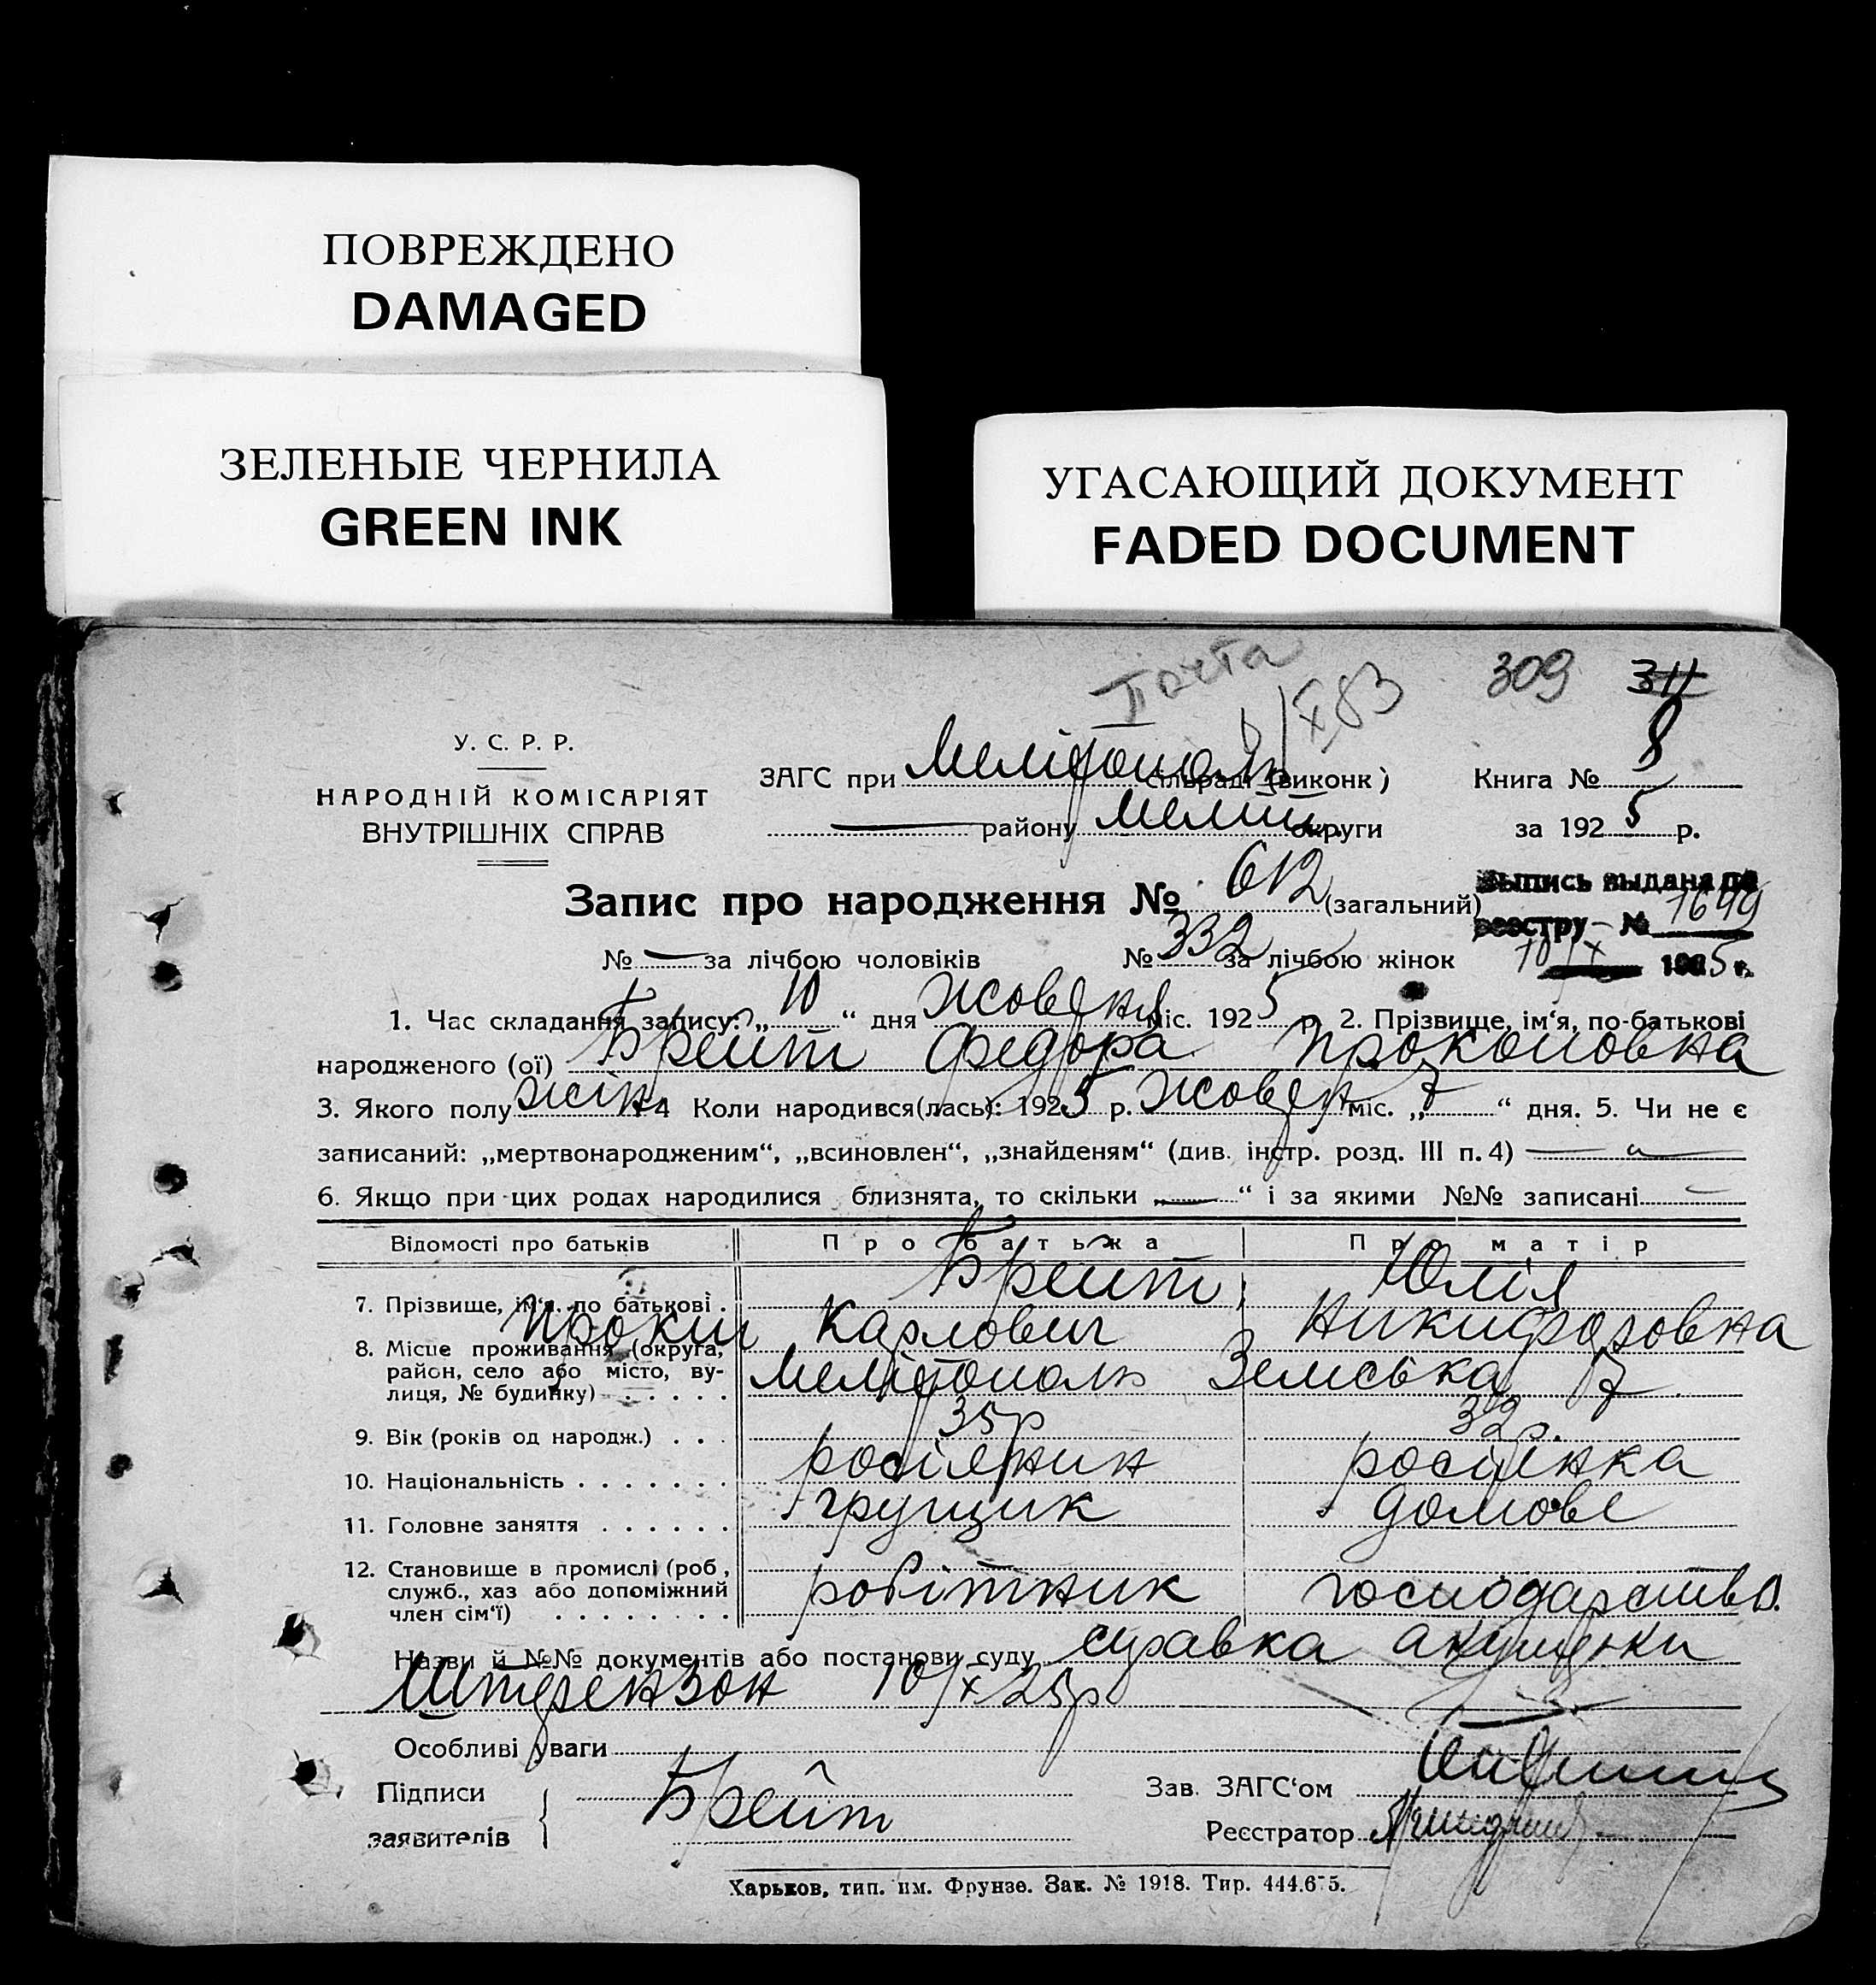 ПОВРЕЖДЕНО
DAMAGED
ЗЕЛЕНЫЕ ЧЕРНИЛА
GREEN INK
УГАСАЮЩИЙ ДОКУМЕНТ
FADED DOCUMENT
Почта
309 311
X 83
У. С. Р. Р.
НАРОДНІЙ КОМІСАРІЯТ
ВНУТРІШНІХ СПРАВ
ЗАГС при Мелітополь сільраді (виконк)
— району Меліт. округи
Книга № 8
за 1925 р.
Запис про народження № 612 (загальний)
Выпись выдана по
реестру № 1699
10/X 1925 г.
№ — за лічбою чоловіків № 332 за лічбою жінок
1. Час складання запису: „10“ дня Жовтня міс. 1925 р. 2. Прізвище, ім‘я, по-батькові
народженого (ої) Брейт Федора Прокоповна
3. Якого полу жін. 4 Коли народився(лась): 1925 р. Жовтн міс. „7“ дня. 5. Чи не є
записаний: „мертвонародженим“, „всиновлен“, „знайденям“ (див. інстр. розд. III п. 4) —
6. Якщо при цих родах народилися близнята, то скільки „—“ і за якими №№ записані —
Відомості про батьків Про батька Про матір
7. Прізвище, ім‘я, по батькові . Брейт Юлія
Прокіп Карлович Никифоровна
8. Місце проживання (округа,
район, село або місто, ву-
лиця, № будинку) . . . . Мелітополь Земська 7
9. Вік (років од народж.) . . . 35 р 32 р.
10. Національність . . . . . . . росіянин росіянка
11. Головне заняття . . . . . . грущик домове
12. Становище в промислі (роб.,
служб., хаз або допоміжний
член сім‘ї) . . . . . . . . робітник господарство.
Назви й №№ документів або постанови суду справка акушерки
Штерензон 10/X 25 р
Особливі уваги
Підписи
заявителів
Брейт
Зав. ЗАГС‘ом
Реєстратор
Харьков, тип. им. Фрунзе. Зак. № 1918. Тир. 444.675.